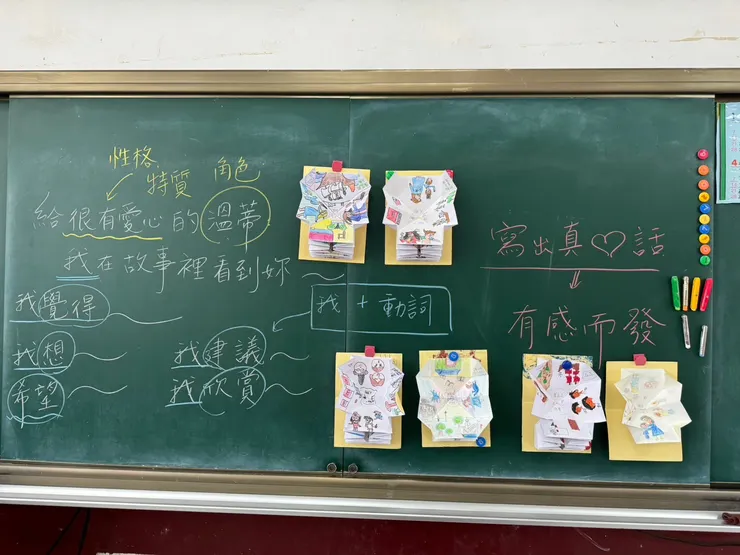 性格
特質
角色
給很有愛心的溫蒂
我在故事裡看到妳
我覺得
我想
希望
我+動詞
我建議
我欣賞
寫出真♡話
有感而發